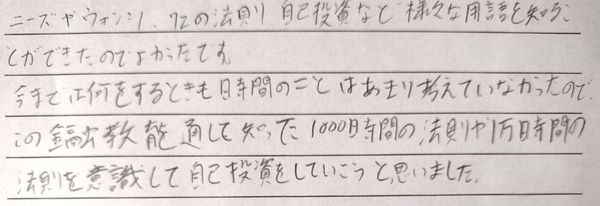 ニーズやウォンツ、72の法則、自己投資など様々な用語を知るこ
とができたのでよかったです。
今までは何をするときも時間のことはあまり考えていなかったので、
この金融教育を通して知った1000時間の法則や1万時間の
法則を意識して自己投資をしていこうと思いました。